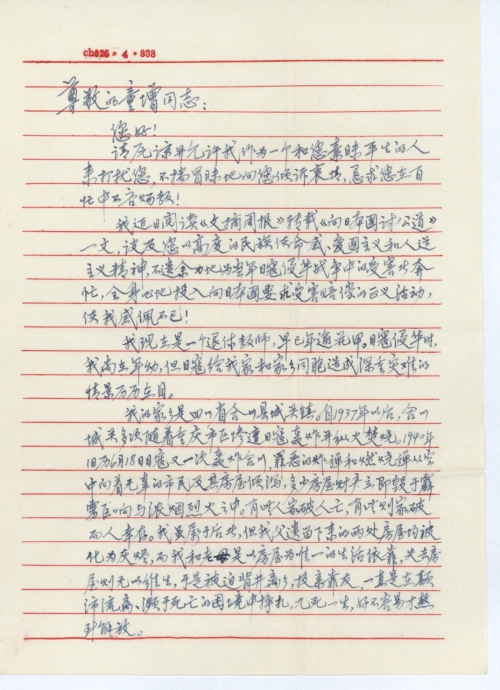 ch025 · 4 · 838
尊敬的童增同志：
您好！
请原谅并允许我作为一个和您素昧平生的人
来打扰您，不揣冒昧地向您倾诉衷情，恳求您在百
忙中不吝赐教！
我近日阅读《文摘周报》转载《向日本国讨公道》
一文，谈及您以高度的民族使命感、爱国主义和人道
主义精神，不遗余力地为当年日寇侵华战争中的受害者奔
忙，全身心地投入向日本国要求受害赔偿的正义活动，
使我感佩不已！
我现在是一个退休教师，早已年逾花甲。日寇侵华时，
我尚在年幼，但日寇给我家和家乡同胞造成深重灾难的
情景历历在目。
我的家乡是四川省合川县城关镇。自1937年以后，合川
城关多次随着重庆市区惨遭日寇轰炸并纵火焚烧。1940年
旧历6月18日日寇又一次轰炸合川，罪恶的炸弹和燃烧弹从空
中向着无辜的市民及其房屋倾泻，多少房屋财产立即毁于霹
雳巨响与浓烟烈火之中。有些人家破人亡，有些则家破
而人幸存。我虽属于后者，但我父遗留下来的两处房屋均被
化为灰烬，而我和老母是以房屋为唯一的生活依靠，失去房
屋则无以维生，于是被迫背井离乡，投亲靠友，一直是在颠
沛流离、濒于死亡的困境中挣扎，九死一生，好不容易才熬
到解放。